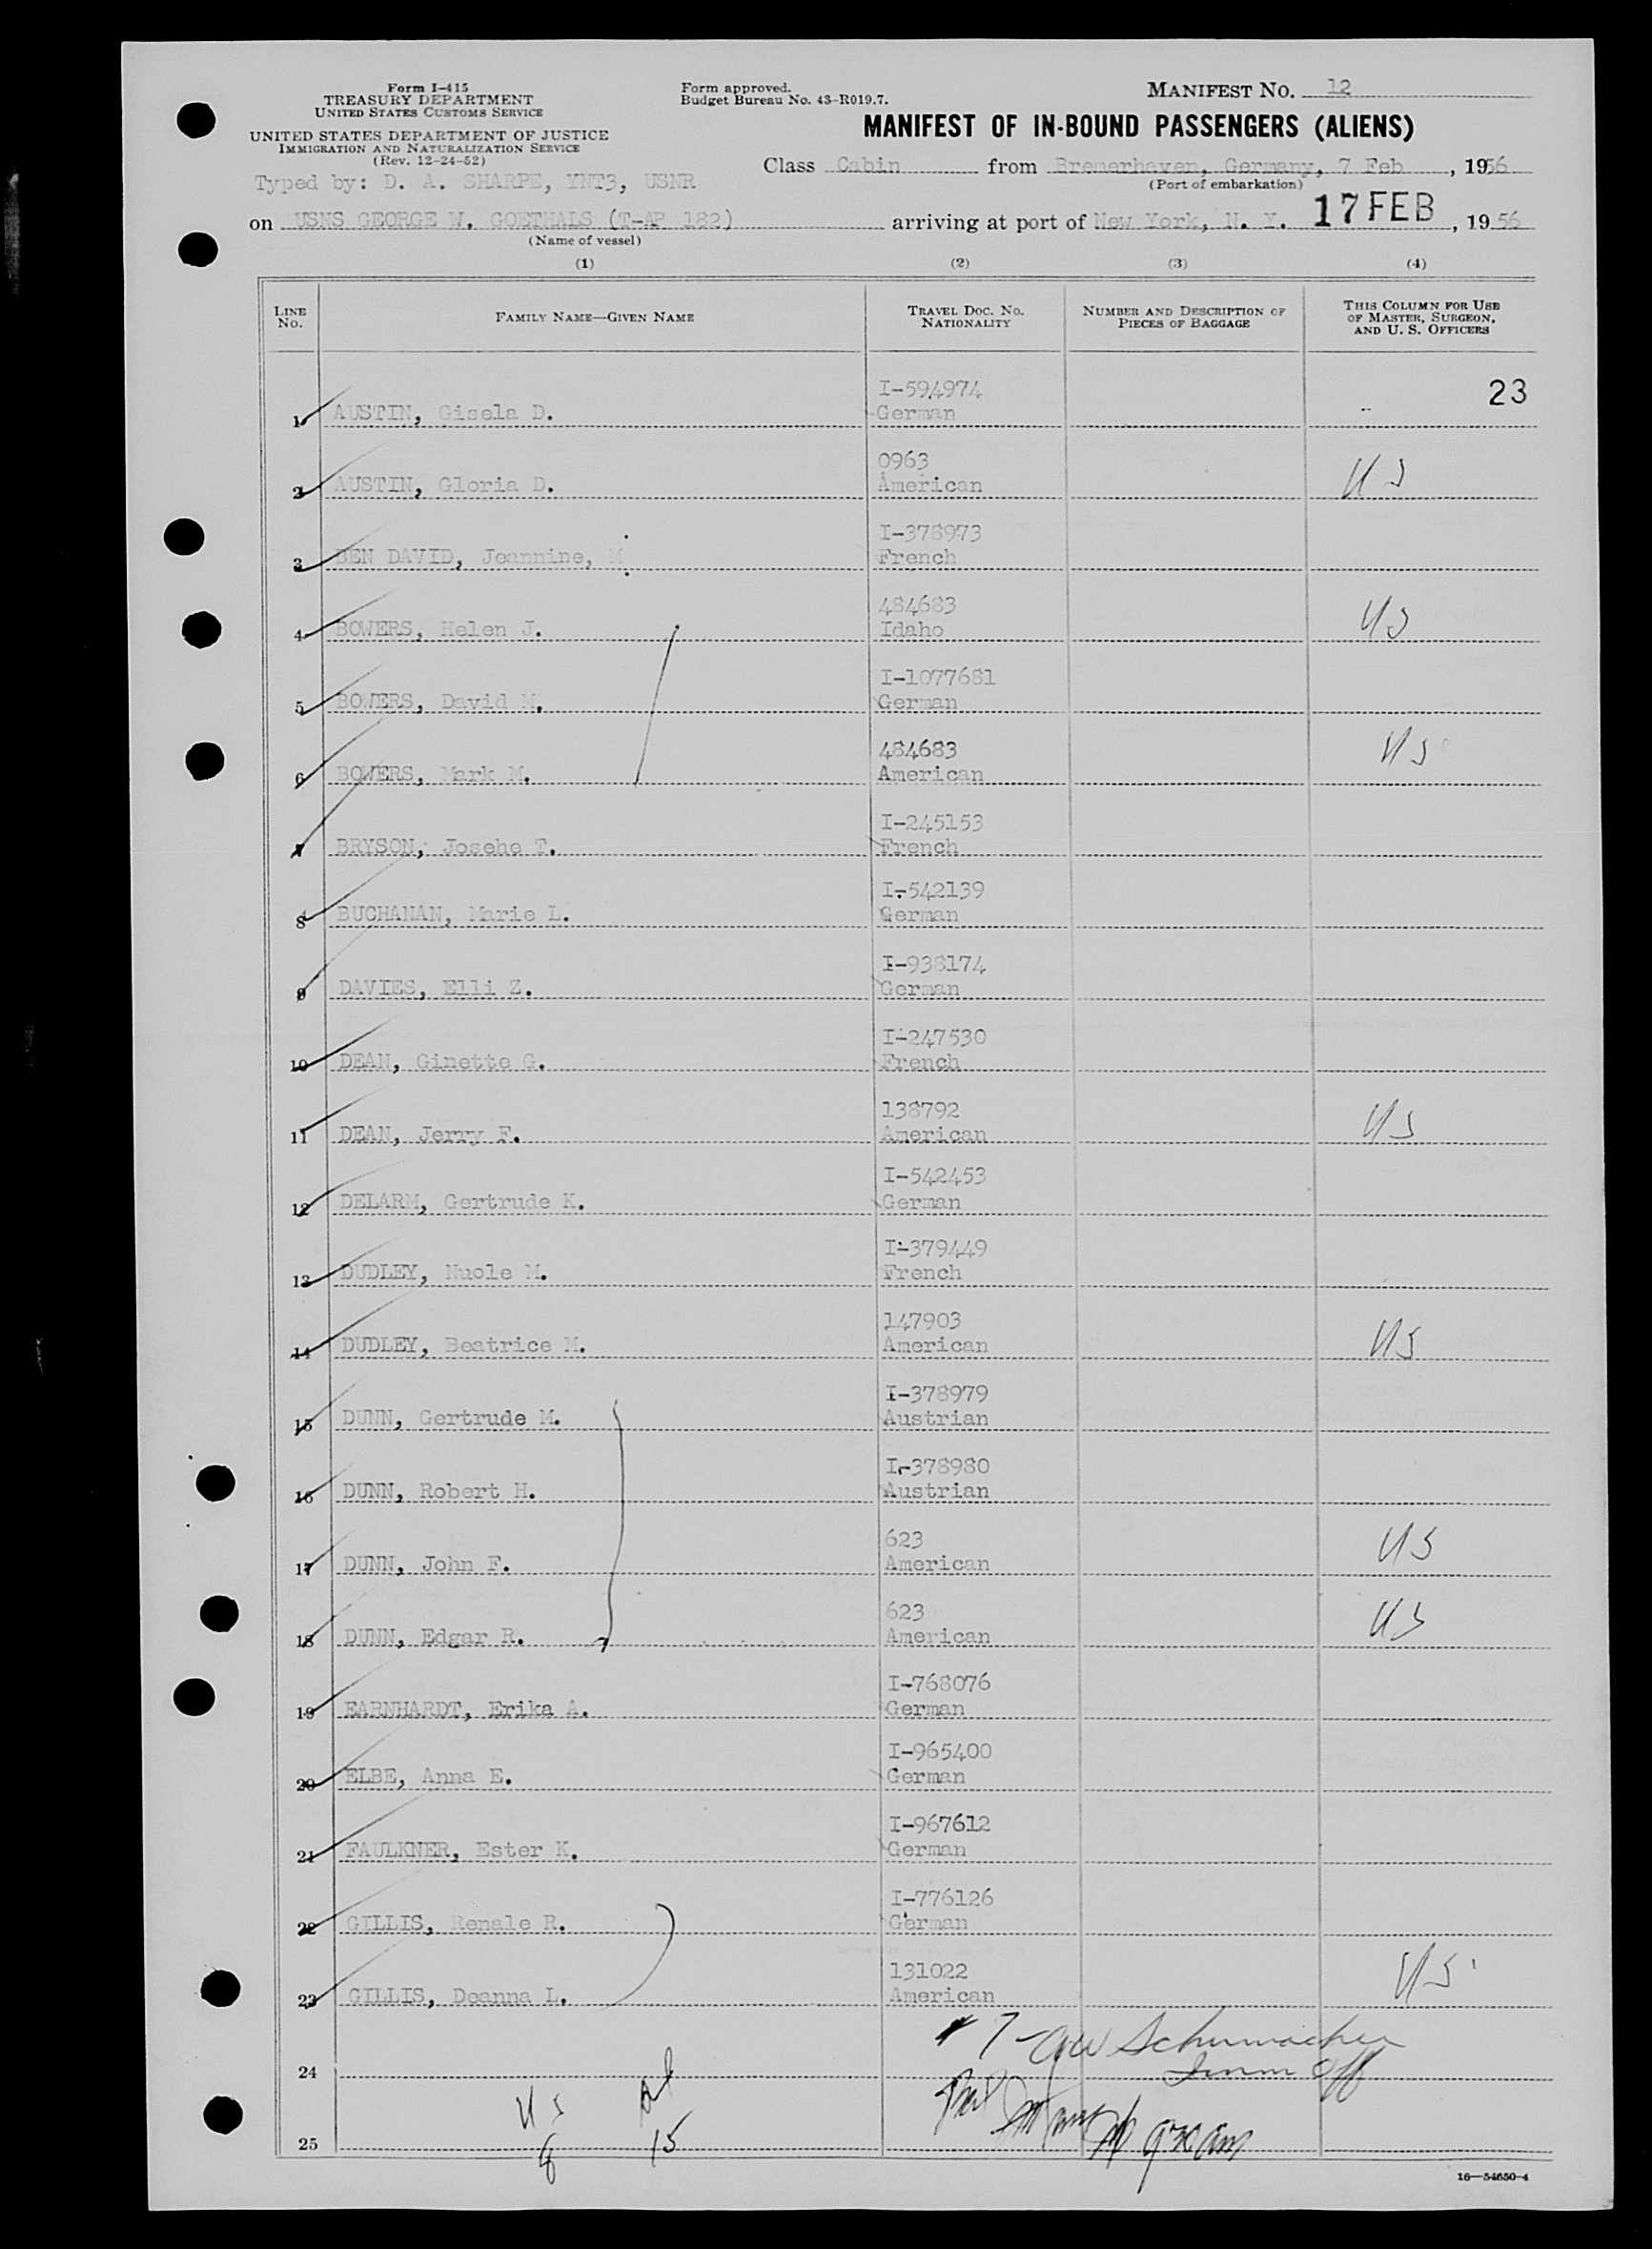 Form I-415
TREASURY DEPARTMENT
UNITED STATES CUSTOMS SERVICE
UNITED STATES DEPARTMENT OF JUSTICE
IMMIGRATION AND NATURALIZATION SERVICE
(Rev. 12-24-52)
Form approved.
Budget Bureau No. 43-R019.7.
MANIFEST NO. 12
MANIFEST OF IN-BOUND PASSENGERS (ALIENS)
Class Cabin from Bremerhaven, Germany, 7 Feb, 1956
(Port of embarkation)
Typed by: D. A. SHARPE, YNT3, USNR
on USNS GEORGE W. GOETHALS (T-AP 182) arriving at port of New York, N. Y. 17 FEB, 1956
(Name of vessel)
(1) (2) (3) (4)
LINE NO. FAMILY NAME—GIVEN NAME TRAVEL DOC. NO. NATIONALITY NUMBER AND DESCRIPTION OF PIECES OF BAGGAGE THIS COLUMN FOR USE OF MASTER, SURGEON, AND U. S. OFFICERS
I-594974 23
1 AUSTIN, Gisela D. German
0963
2 AUSTIN, Gloria D. American US
I-378973
3 BEN DAVID, Jeannine, M. French
484683
4 BOWERS, Helen J. Idaho US
I-1077681
5 BOWERS, David M. German
484683
6 BOWERS, Mark M. American US
I-245153
7 BRYSON, Josehe T. French
I-542139
8 BUCHANAN, Marie L. German
I-938174
9 DAVIES, Elli Z. German
I-247530
10 DEAN, Ginette G. French
138792
11 DEAN, Jerry F. American US
I-542453
12 DELARM, Gertrude K. German
I-379449
13 DUDLEY, Nuole M. French
147903
14 DUDLEY, Beatrice M. American US
I-378979
15 DUNN, Gertrude M. Austrian
I-378980
16 DUNN, Robert H. Austrian
623
17 DUNN, John F. American US
623
18 DUNN, Edgar R. American US
I-768076
19 EARNHARDT, Erika A. German
I-965400
20 ELBE, Anna E. German
I-967612
21 FAULKNER, Ester K. German
I-776126
22 GILLIS, Renale R. German
131022
23 GILLIS, Deanna L. American US
7- Schumacher
Imm Off
24
US
8 15
25
16—54650-4